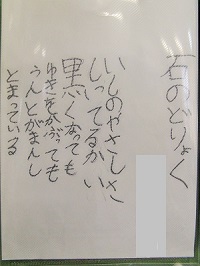 石のどりょく
いしのやさしさ
しっているかい
黒くなっても
ゆきをかぶっても
うんとがまんし
とまっている